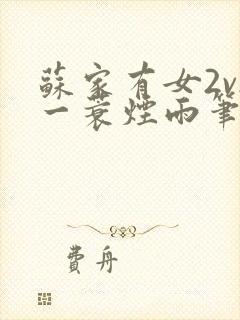 蘇家有女2v
一蓑煙雨筆
費舟